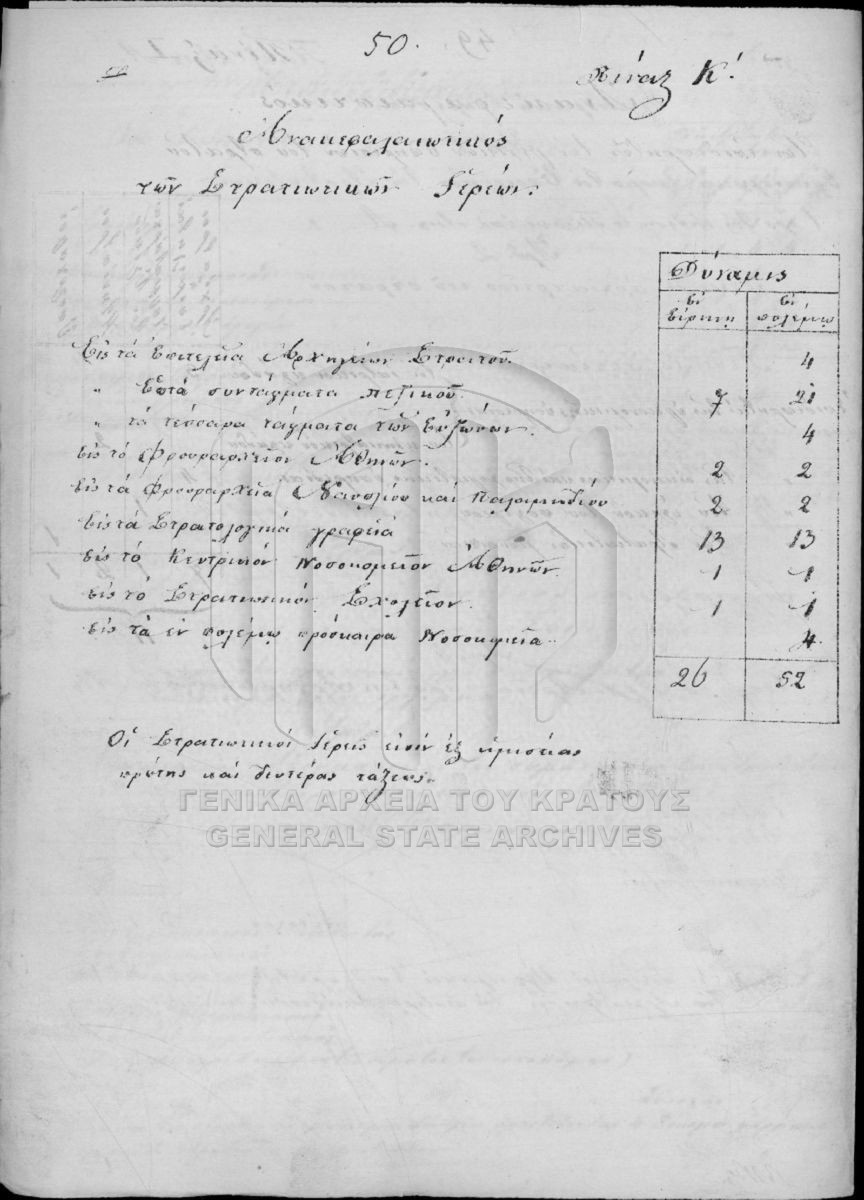 50.
Πίναξ Κ΄.
Ἀνακεφαλαιωτικός
τῶν Στρατιωτικῶν Ἱερέων.
Δύναμις
ἐν εἰρήνῃ ἐν πολέμῳ
Εἰς τὰ Ἐπιτελεῖα Ἀρχηγείων Στρατοῦ. 4
" Ἑπτὰ συντάγματα πεζικοῦ. 7 21
" τὰ τέσσαρα τάγματα τῶν Εὐζώνων. 4
Εἰς τὸ Φρουραρχεῖον Ἀθηνῶν. 2 2
Εἰς τὰ Φρουραρχεῖα Ναυπλίου καὶ Παλαμηδίου 2 2
Εἰς τὰ Στρατολογικὰ γραφεῖα 13 13
Εἰς τὸ Κεντρικὸν Νοσοκομεῖον Ἀθηνῶν. 1 1
Εἰς τὸ Στρατιωτικὸν Σχολεῖον. 1 1
Εἰς τὰ ἐν πολέμῳ πρόσκαιρα Νοσοκομεῖα. 4
26 52
Οἱ Στρατιωτικοὶ Ἱερεῖς εἰσὶν ἐξ ἡμισείας
πρώτης καὶ δευτέρας τάξεως.
ΓΕΝΙΚΑ ΑΡΧΕΙΑ ΤΟΥ ΚΡΑΤΟΥΣ
GENERAL STATE ARCHIVES